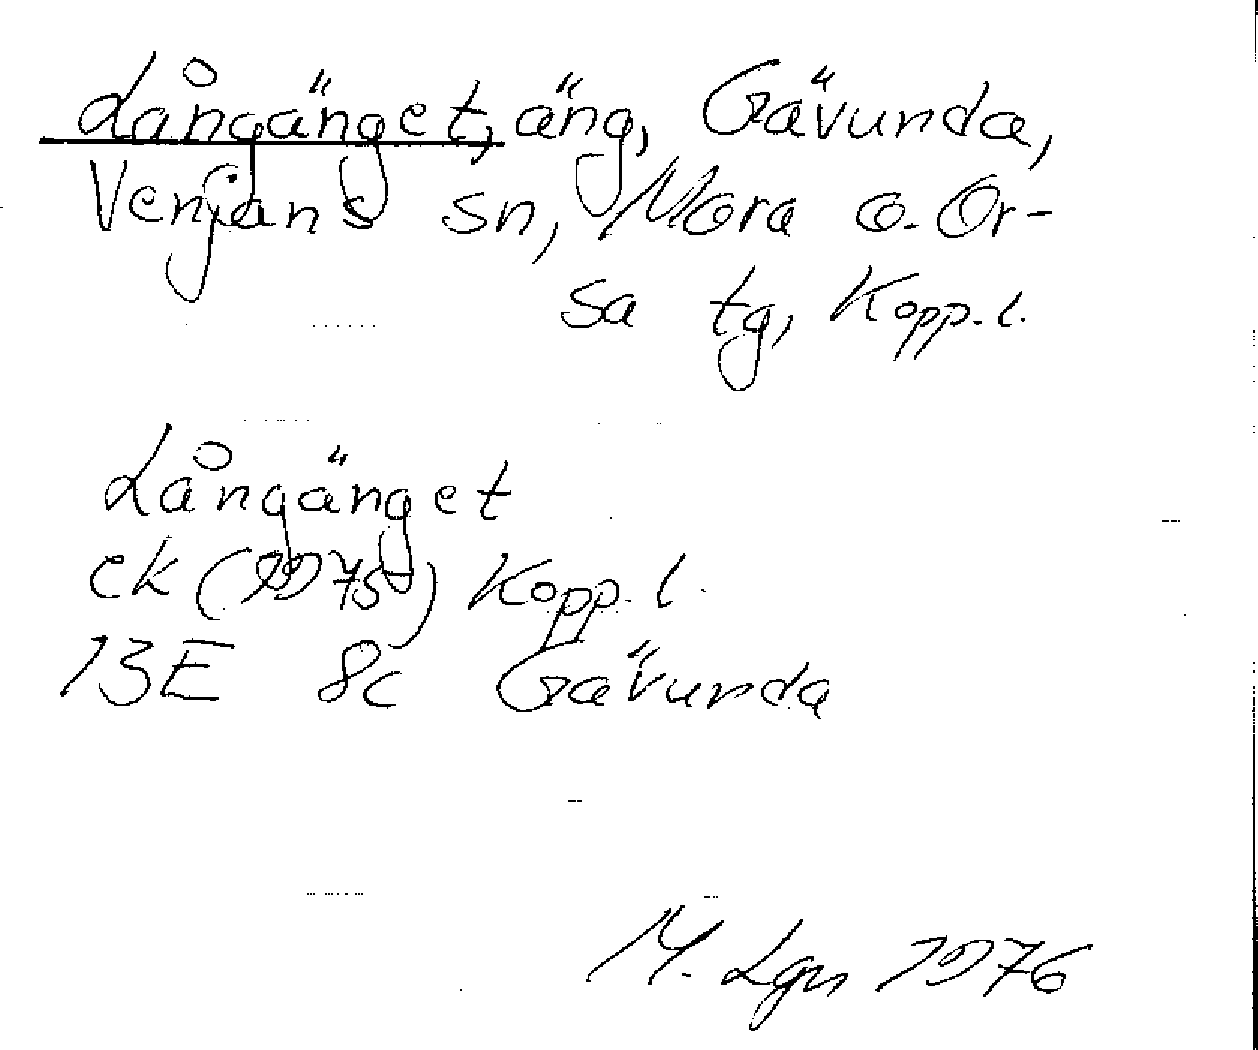 Långänget, äng, Gävunda,
Venjans sn, Mora o. Or-
sa tg, Kopp. l.
Långänget
ek (1975) Kopp. l.
13E 8c Gävunda
M. Lgn 1976